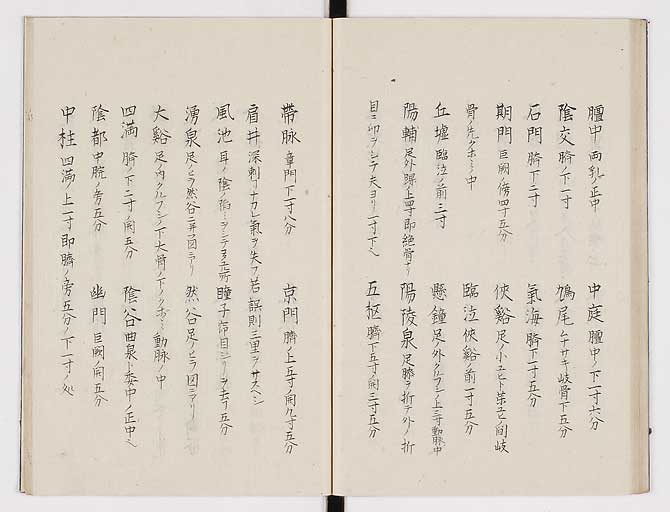 膻中 両乳ノ正中 中庭 膻中ノ下一寸六分
陰交 臍ノ下一寸 鳩尾 ムナサキ岐骨下五分
石門 臍下二寸 氣海 臍下一寸五分
期門 巨闕ノ傍四寸五分 侠谿 足ノ小ユヒト第四ユヒノ間岐
骨ノ先クホミノ中 臨泣 侠谿ノ前一寸五分
丘墟 臨泣ノ前三寸 懸鐘 足外クルフシノ上三寸動脉中
陽輔 足外踝上四寸即絶骨ナリ 陽陵泉 足膝ヲ折テ外ノ折
目ニ印ヲシテ夫ヨリ一寸下ヘ 五枢 臍下五寸ノ開三寸五分
帶脉 章門下一寸八分 京門 臍ノ上五寸ノ開九寸五分
肩井 深刺コトナカレ氣ヲ失フ若誤則三里ヲサスヘシ
風池 耳ノ陰 瞳子 目
湧泉 足ノヒラ然谷ニ并フ図ニアリ 然谷 足ノヒラ図ニアリ
大谿 足ノ内クルフシノ下大骨ノ下クホミノ動脉ノ中
四満 臍ノ下二寸ノ開五分 陰谷 曲泉ト委中ノ正中ヘ
陰都 中脘ノ旁五分 幽門 巨闕ノ開五分
中柱 四満ノ上一寸即臍ノ旁五分ノ下一寸ノ処